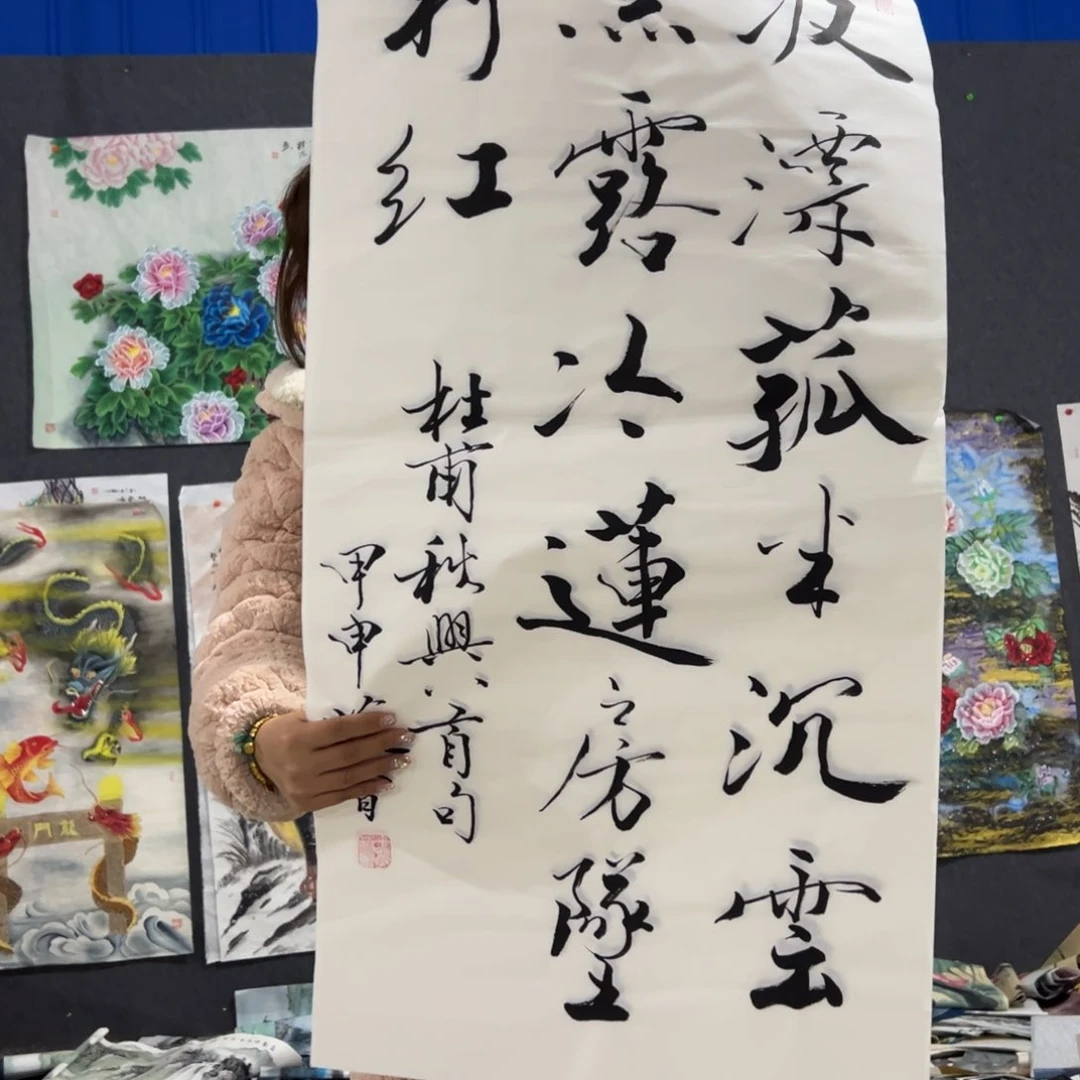 波漂菰米沉雲
黑露冷蓮房墜
粉紅
杜甫秋興八首句
甲申
龍門